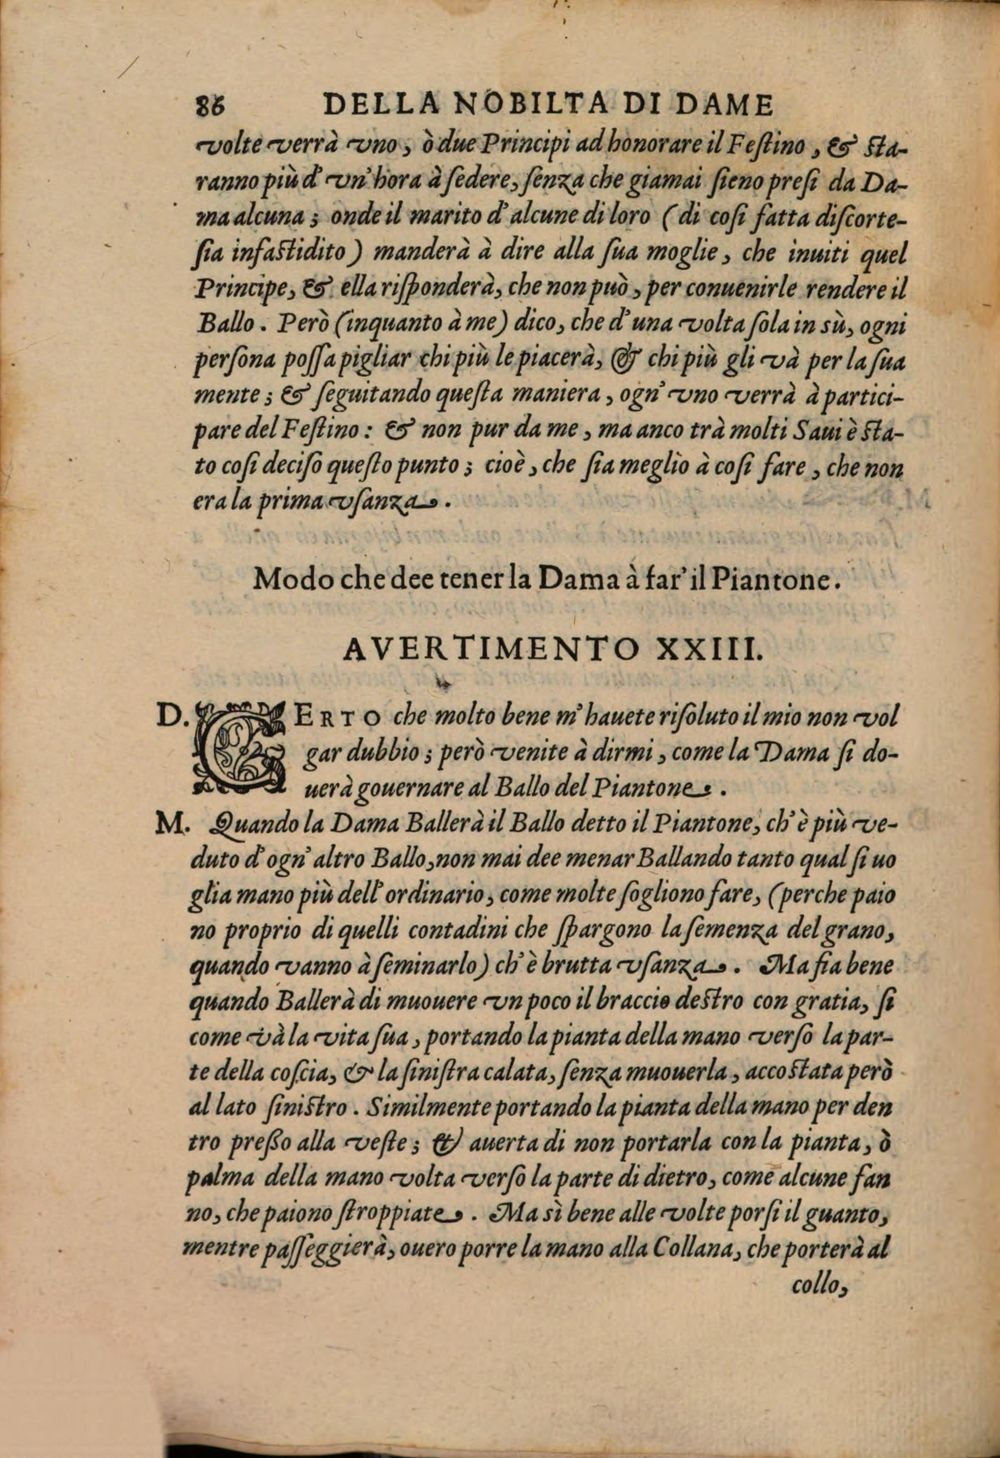 86 DELLA NOBILTA DI DAME
volte verrà vno, ò due Principi ad honorare il Feſtino, & ſta-
ranno più d'vn'hora à ſedere, ſenza che giamai ſieno preſi da Da-
ma alcuna; onde il marito d'alcune di loro (di coſi fatta diſcorte-
ſia infaſtidito) manderà à dire alla ſua moglie, che inuiti quel
Principe, & ella riſponderà, che non può, per conuenirle rendere il
Ballo. Però (inquanto à me) dico, che d'una volta ſola in sù, ogni
perſona poſſa pigliar chi più le piacerà, & chi più gli và per la ſua
mente; & ſeguitando queſta maniera, ogn'vno verrà à partici-
pare del Feſtino: & non pur da me, ma anco trà molti Saui è ſta-
to coſi deciſo queſto punto; cioè, che ſia meglio à coſi fare, che non
era la prima vſanza.
Modo che dee tener la Dama à far' il Piantone.
AVERTIMENTO XXIII.
D. CERTO che molto bene m'hauete riſoluto il mio non vol
gar dubbio; però venite à dirmi, come la Dama ſi do-
uerà gouernare al Ballo del Piantone.
M. Quando la Dama Ballerà il Ballo detto il Piantone, ch'è più ve-
duto d'ogn'altro Ballo, non mai dee menar Ballando tanto qual ſi uo
glia mano più dell'ordinario, come molte ſogliono fare, (perche paio
no proprio di quelli contadini che ſpargono la ſemenza del grano,
quando vanno à ſeminarlo) ch'è brutta vſanza. Ma fia bene
quando Ballerà di muouere vn poco il braccio deſtro con gratia, ſi
come và la vita ſua, portando la pianta della mano verſo la par-
te della coſcia, & la ſiniſtra calata, ſenza muouerla, accoſtata però
al lato ſiniſtro. Similmente portando la pianta della mano per den
tro preßo alla veſte; & auerta di non portarla con la pianta, ò
palma della mano volta verſo la parte di dietro, come alcune fan
no, che paiono ſtroppiate. Ma sì bene alle volte porſi il guanto,
mentre paſſeggierà, ouero porre la mano alla Collana, che porterà al
collo,